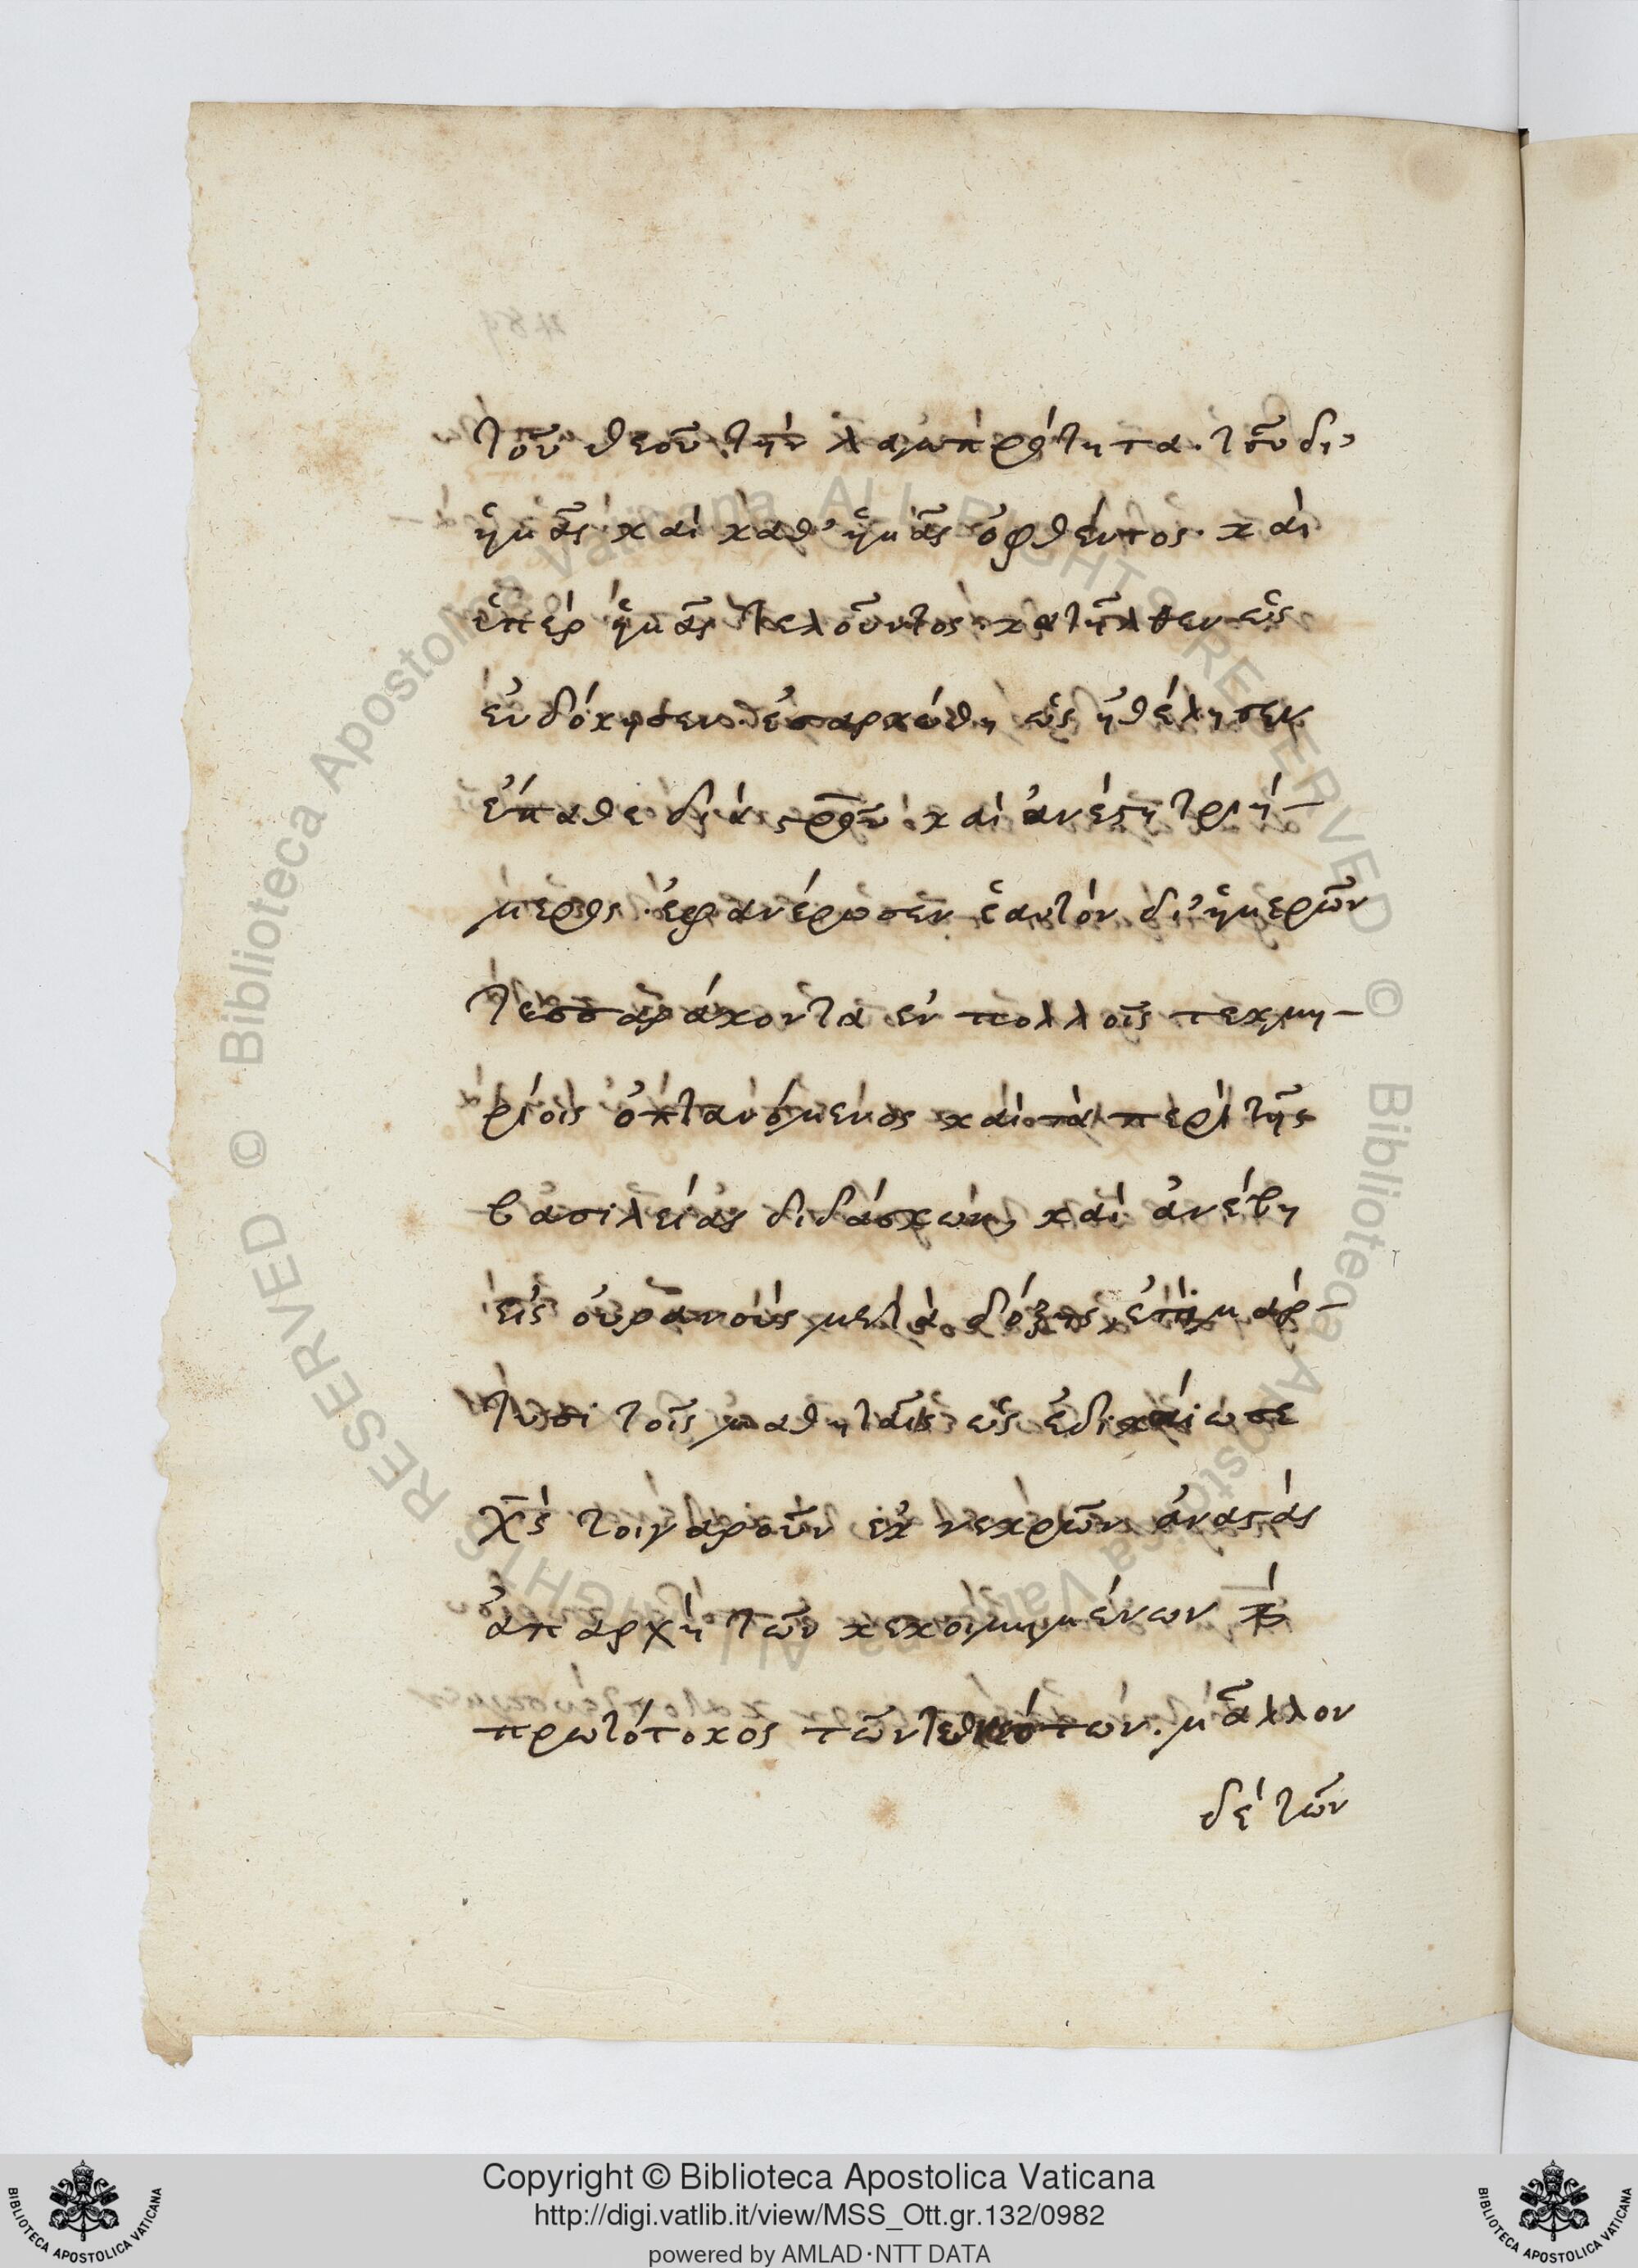 τοῦ θεοῦ τὴν λαμπρότητα. τοῦ δι'
ἡμᾶς καὶ καθ' ἡμᾶς ὀφθέντος. καὶ
ὑπὲρ ἡμᾶς τελοῦντος. κατῆλθεν ὡς
εὐδόκησεν. ἐσαρκώθη ὡς ἠθέλησεν
ἔπαθε διὰ σ̅ρ̅ο̅ῦ̅ καὶ ἀνέστη τριή-
μερος. ἐφανέρωσεν ἑαυτὸν δι' ἡμερῶν
τεσσαράκοντα ἐν πολλοῖς τεκμη-
ρίοις ὀπτανόμενος καὶ τὰ περὶ τῆς
βασιλείας διδάσκων, καὶ ἀνέβη
εἰς οὐρανοὺς μετὰ δόξης, ἐπὶ μάρ-
τυσι τοῖς μαθηταῖς ὡς ἐδικαίωσε
χ̅ς̅ τοιγαροῦν ἐκ νεκρῶν ἀναστὰς
ἀπαρχὴ τῶν κεκοιμημένων
πρωτότοκος τῶν τεθνεότων. μᾶλλον
δὲ τῶν
Copyright © Biblioteca Apostolica Vaticana
http://digi.vatlib.it/view/MSS_Ott.gr.132/0982
powered by AMLAD·NTT DATA
BIBLIOTECA APOSTOLICA VATICANA
BIBLIOTECA APOSTOLICA VATICANA
© Biblioteca Apostolica Vaticana ALL RIGHTS RESERVED © Biblioteca Apostolica Vaticana ALL RIGHTS RESERVED